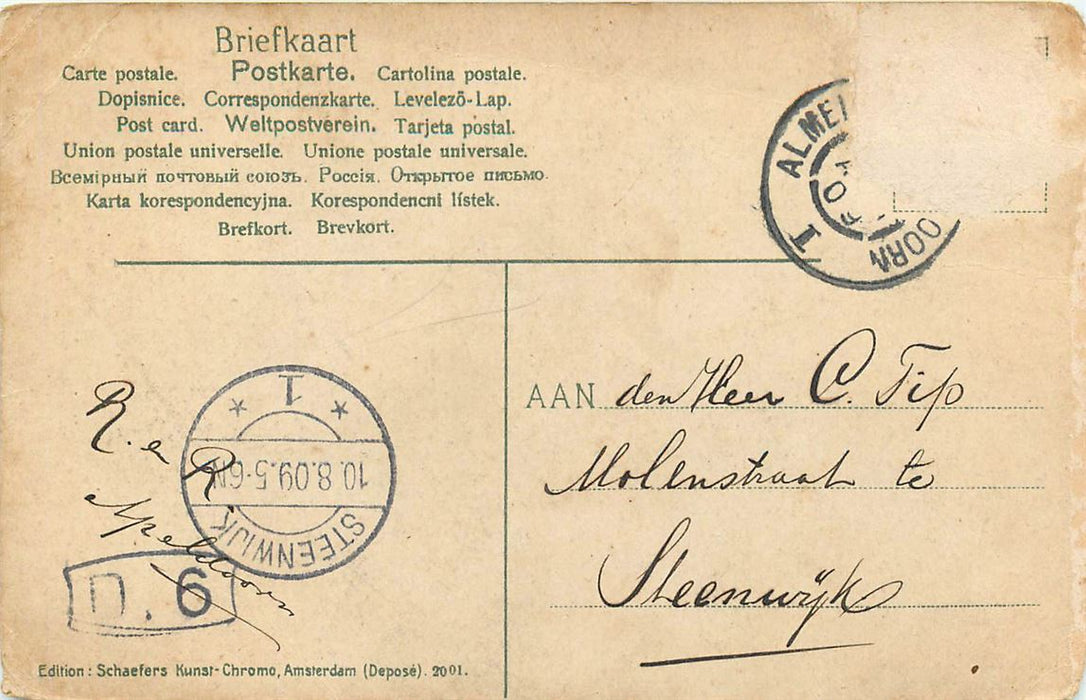 Briefkaart
Carte postale. Postkarte. Cartolina postale.
Dopisnice. Correspondenzkarte. Levelező-Lap.
Post card. Weltpostverein. Tarjeta postal.
Union postale universelle. Unione postale universale.
Всемірный почтовый союзъ. Россія. Открытое письмо.
Karta korespondencyjna. Korespondencni lístek.
Brefkort. Brevkort.
ALME
OORN
1
AAN den Heer C. Tip
Molenstraat te
Steenwijk
R. en R.
Apeldoorn
1
10.8.09.5-6N
STEENWIJK
D. 6
Edition: Schaefers Kunst-Chromo, Amsterdam (Deposé). 2001.